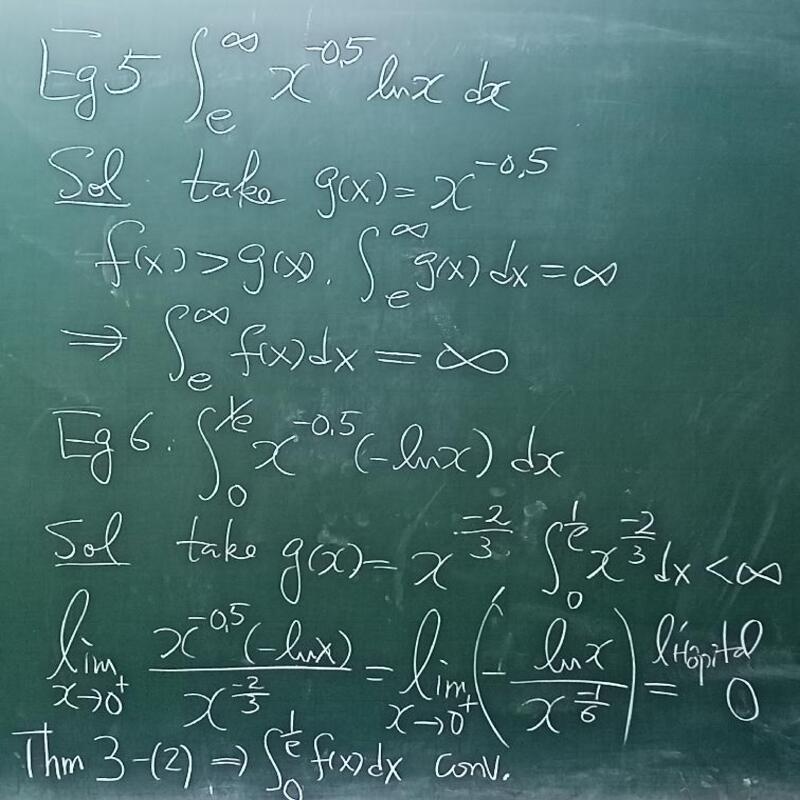 Eg 5 ∫_e^∞ x^{-0.5} lnx dx
Sol. take g(x) = x^{-0.5}
f(x) > g(x). ∫_e^∞ g(x) dx = ∞
⇒ ∫_e^∞ f(x) dx = ∞
Eg 6. ∫_0^{1/e} x^{-0.5} (-lnx) dx
Sol take g(x) = x^{-2/3} ∫_0^{1/e} x^{-2/3} dx < ∞
lim_{x→0^+} \frac{x^{-0.5} (-lnx)}{x^{-2/3}} = lim_{x→0^+} (-\frac{lnx}{x^{-1/6}}) \overset{l'Hôpital}{=} 0
Thm 3-(2) ⇒ ∫_0^{1/e} f(x) dx conv.